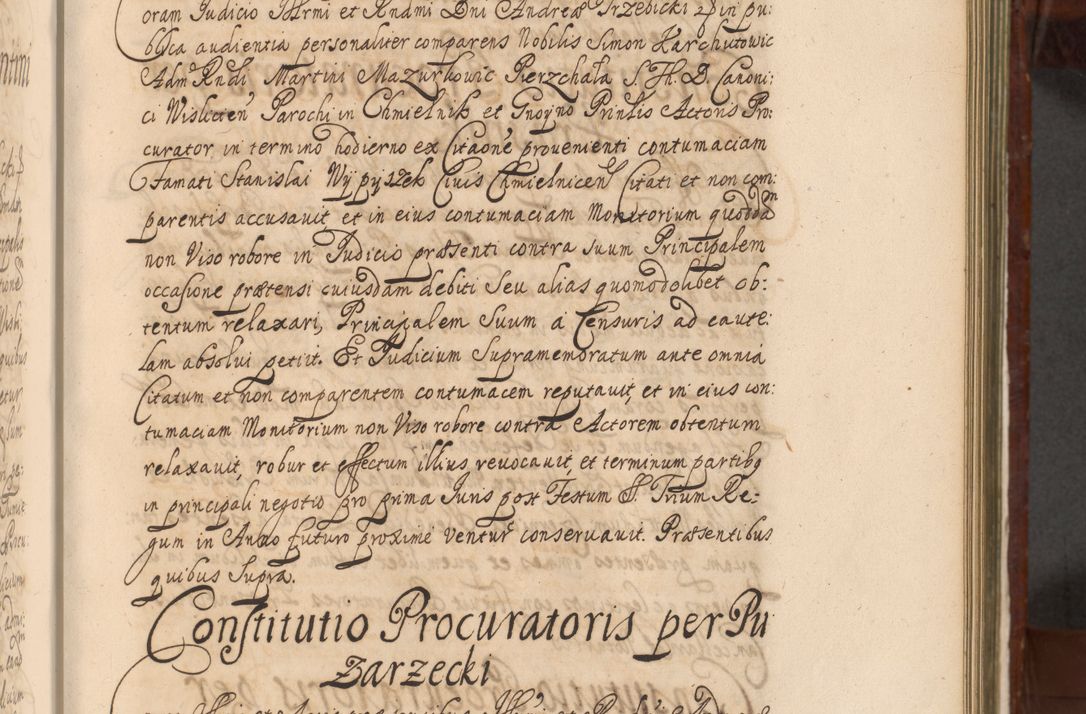 oram Judicio Jllrmi et Rndmi Dni Andreæ Trzebicki in pu:
blica audientia personaliter comparens Nobilis Simon Karchutowic
Adm Rndi Martini Mazurkowic Pierzchała S. Th. D. Canoni:
ci Wislicien Parochi in Chmielnik et Gnoyno Prnlis Actoris Pro:
curator in termino hodierno ex Citaone provenienti contumaciam
Famati Stanislai Wypyszek Civis Chmielnicen Citati et non com:
parentis accusavit et in eius contumaciam Monitorium quoddam
non Viso robore in Judicio præsenti contra suum Principalem
occasione prætensi cuiusdam debiti seu alias quomodolibet ob:
tentum relaxari, Principalem Suum à Censuris ad caute:
lam absolvi petiit. Et Judicium Supramemoratum ante omnia
Citatum et non comparentem contumacem reputavit, et in eius con:
tumaciam Monitorium non Viso robore contra Actorem obtentum
relaxavit, robur et effectum illius revocavit, et terminum partibq
in principali negotio pro prima Juris post Festum S. Trium Re:
gum in Anno futuro proxime ventur conservavit. Præsentibus
quibus supra.
Constitutio Procuratoris per Pu
zarzecki